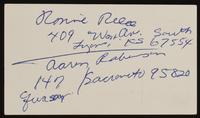 Ronnie Reese
409 West Av. South
Lyons, KS 67554
Aaron Robinson
147 Sacramento 95820